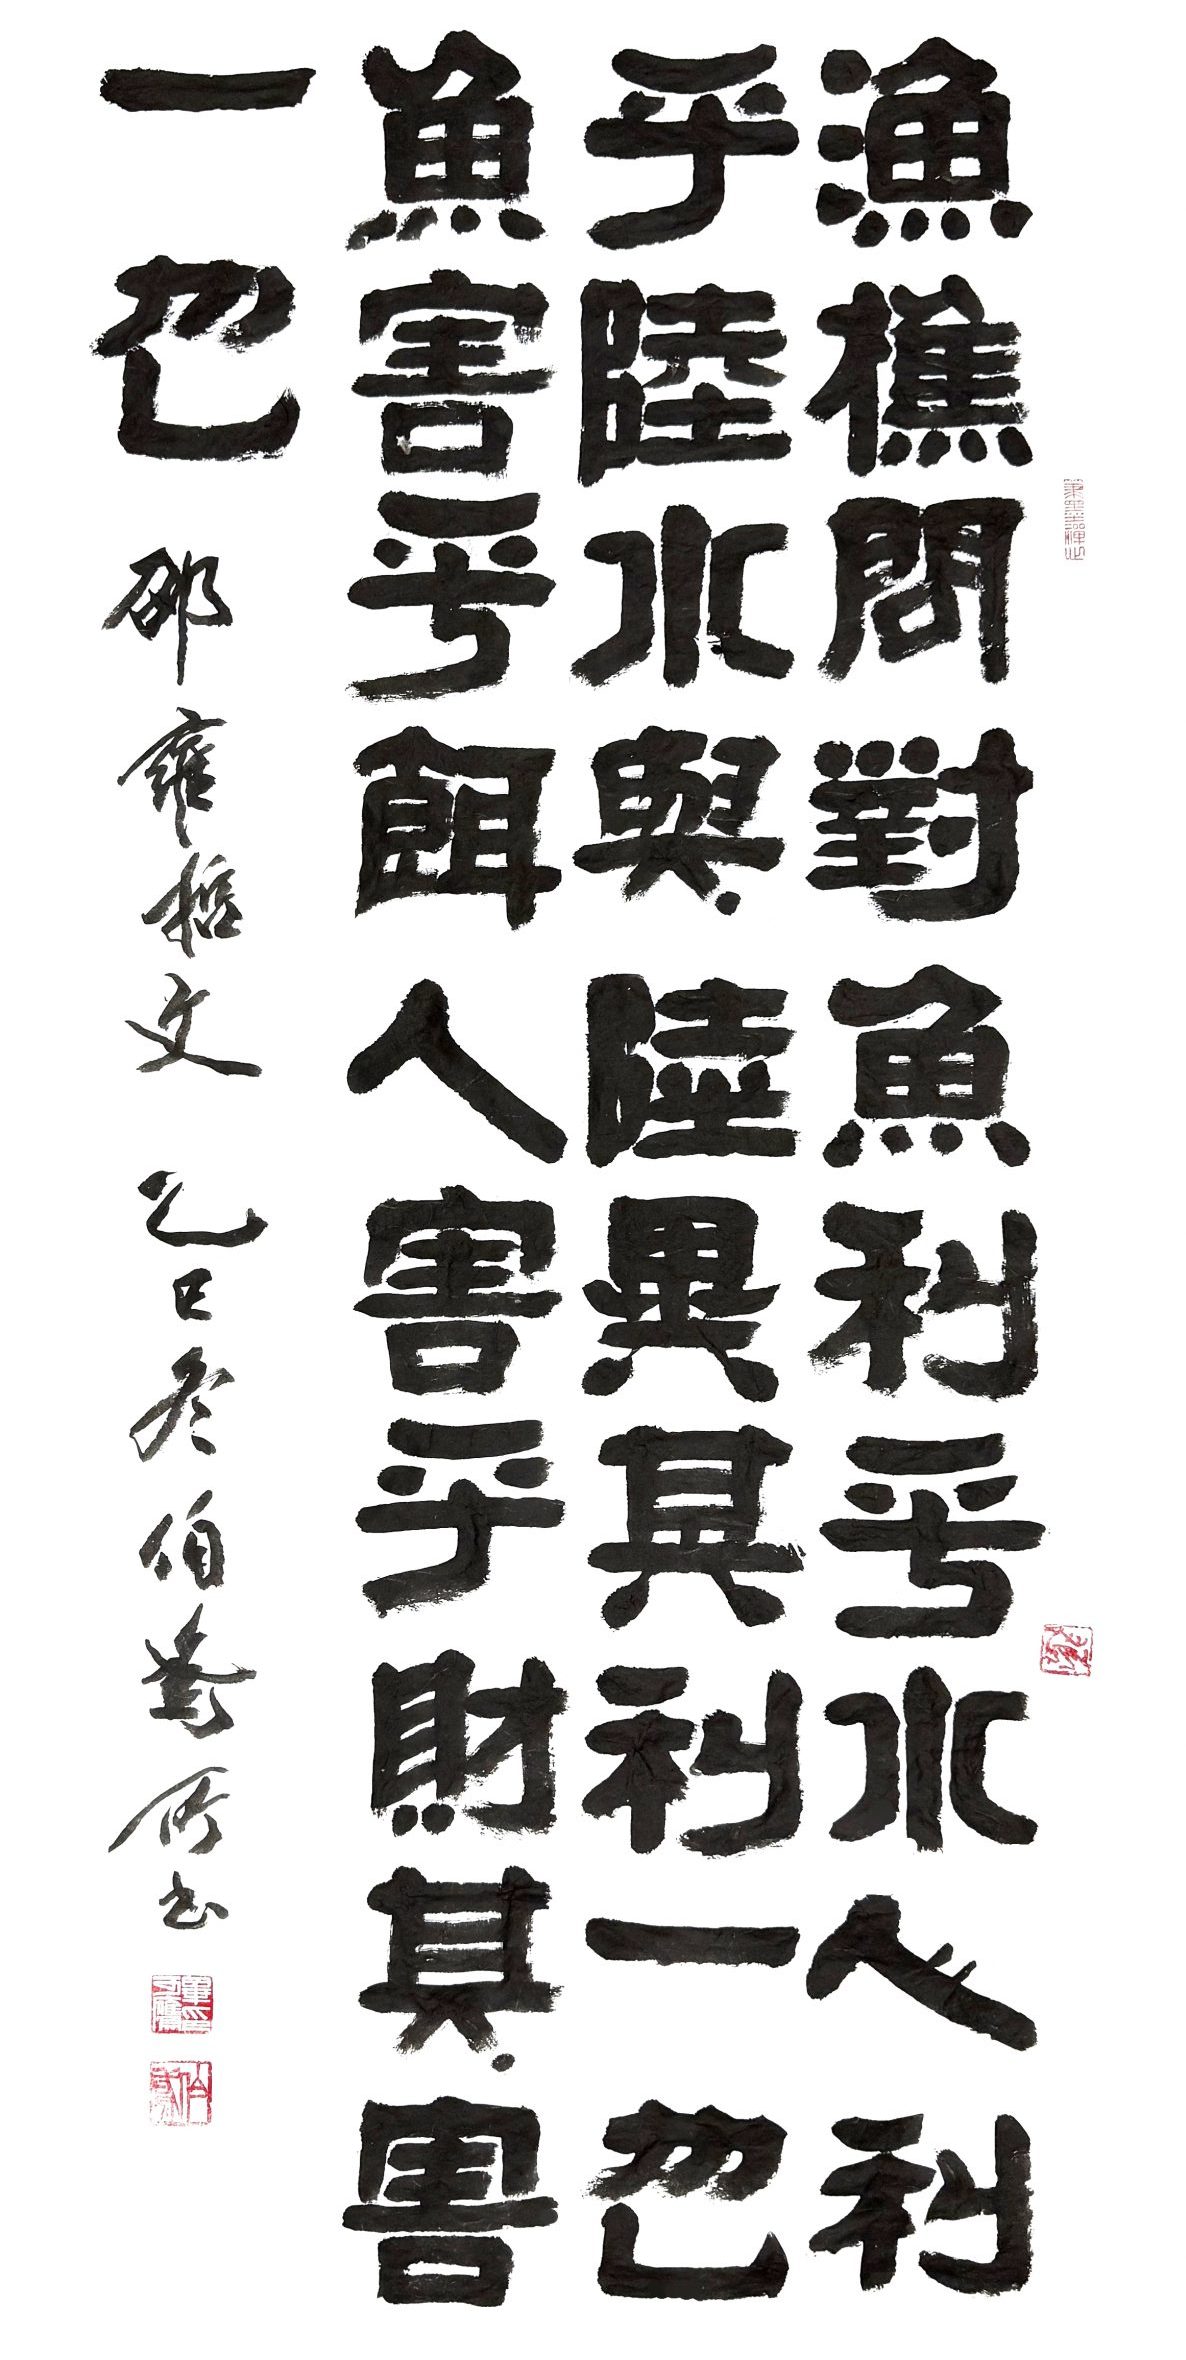 漁樵問對魚利乎水人利
乎陸水與陸異其利一也
魚害乎餌人害乎財其害
一也 邵雍哲文 乙巳冬伯所書